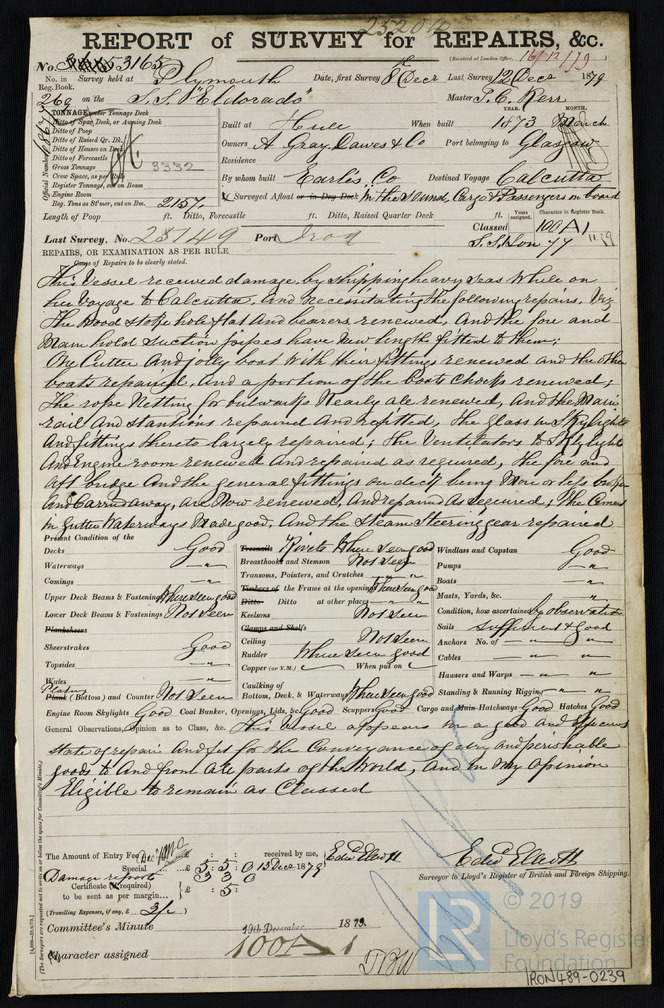 25204
REPORT of SURVEY for REPAIRS, &c.
(Received at London Office, 16/12/79)
No. 53165
No. in Reg. Book. Survey held at Plymouth Date, first Survey 8th Decr Last Survey 12 Decr 1879
269 on the S.S. "Eldorado" Master P. C. Kerr
TONNAGE under Tonnage Deck
Ditto of Spar Deck, or Awning Deck
Ditto of Poop
Ditto of Raised Qr. Dk.
Ditto of Houses on Deck
Ditto of Forecastle
Gross Tonnage 3332
Crew Space, as per Rule
Register Tonnage, cut on Beam
Engine Room
Reg. Tons as St'mer, cut on Bm. 2157
Official Number
YEAR. MONTH.
Built at Hull When built 1873 March
Owners A Gray, Dawes & Co Port belonging to Glasgow
Residence
By whom built Earles Co Destined Voyage Calcutta
Surveyed Afloat or in Dry Dock In the sound, Cargo & Passengers on board
Length of Poop ft. Ditto, Forecastle ft. Ditto, Raised Quarter Deck ft.
Years assigned. Character in Register Book.
Last Survey, No. 25149 Port Iron
Classed 100 A 1
S.S. Lon 77 11.79
REPAIRS, OR EXAMINATION AS PER RULE
Cause of Repairs to be clearly stated.
This Vessel received damage by shipping heavy seas while on
her voyage to Calcutta, and necessitating the following repairs, Viz
The Wood stoke hole flat and bearers renewed, and the fore and
Main hold Suction pipes have new lengths fitted to them;
One Cutter and jolly boat with their fittings renewed and the other
boats repaired, and a portion of the boats chocks renewed;
The rope Netting for bulwarks Nearly all renewed, and the Main
rail and stantions repaired and refitted, the glass in Skylights
and fittings thereto largely repaired; the Ventilators to Skylight
and Engine room renewed and repaired as required, the fore and
aft bridge and the general fittings on deck being More or less broken
and Carried away, are Now renewed, and repaired as required; the Cement
in Gutter Waterways Made good, and the Steam Steering gear repaired
Present Condition of the
Decks Good
Waterways "
Comings "
Upper Deck Beams & Fastenings Where seen good
Lower Deck Beams & Fastenings Not Seen
Planksheers
Sheerstrakes Good
Topsides "
Wales "
Plating
Plank (Bottom) and Counter Not Seen
Treenails Rivets Where Seen good
Breasthooks and Stemson Not Seen
Transoms, Pointers, and Crutches "
Timbers of the Frame at the openings Where seen good
Ditto Ditto at other places "
Keelsons Not Seen
Clamps and Shelfs
Ceiling Not Seen
Rudder Where seen good
Copper (or Y.M.) When put on
Caulking of
Bottom, Deck, & Waterways Where seen good
Windlass and Capstan Good
Pumps "
Boats "
Masts, Yards, &c. "
Condition, how ascertained by observation
Sails Sufficient & Good
Anchors No. of "
Cables "
Hawsers and Warps "
Standing & Running Rigging "
Engine Room Skylights Good Coal Bunker, Openings, Lids, &c. Good Scuppers Good Cargo and Main Hatchways Good Hatches Good
General Observations, Opinion as to Class, &c. This Vessel appears in a good and efficient
state of repair and fit for the Conveyance of dry and perishable
goods to and from all parts of the World, and in My Opinion
Eligible to remain as Classed
The Amount of Entry Fee
Special £ 5 : 5 : 0 received by me, Edwd Elliott
Damage report 3 3 0 13 Decr 1879
Certificate (if required)
to be sent as per margin £ : 5 :
(Travelling Expenses, if any, £ 3/-)
Edwd Elliott
Surveyor to Lloyd's Register of British and Foreign Shipping.
Committee's Minute 19th December 1879.
Character assigned 100 A 1
© 2019
LR
Lloyd's Register
Foundation
IRON489-0239